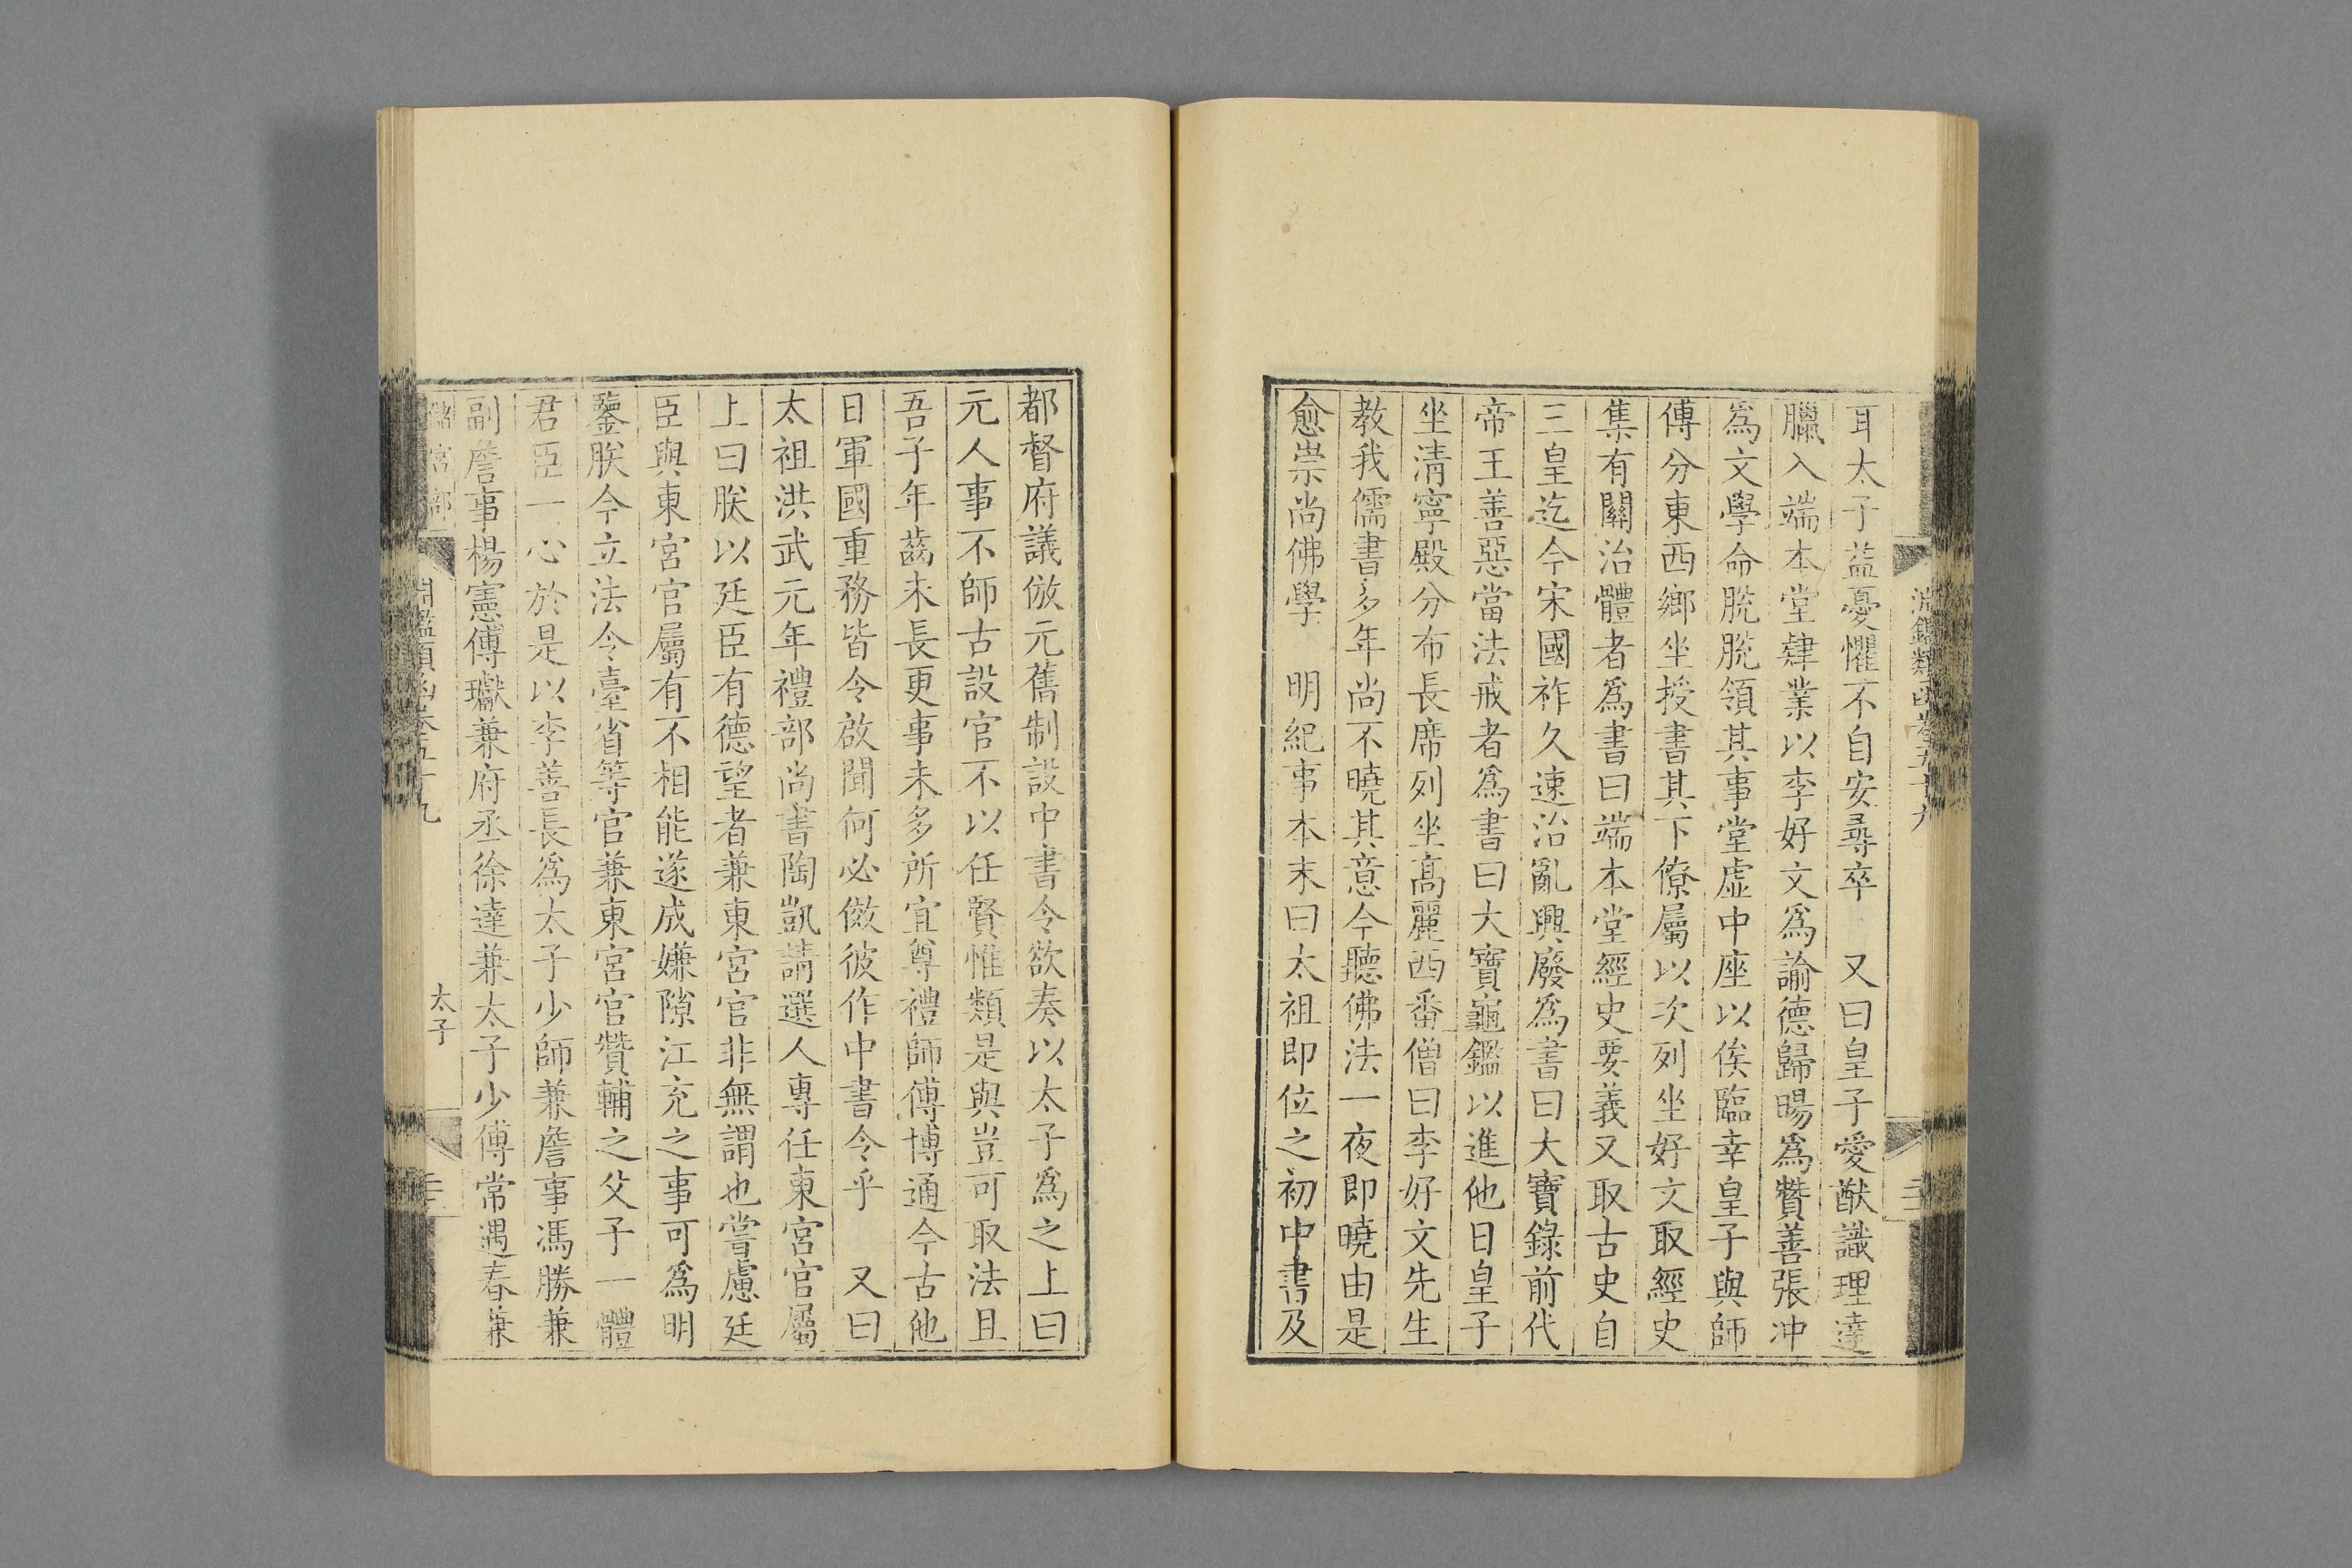 耳太子益憂懼不自安尋卒　又曰皇子愛猷識理達
臘入端本堂肄業以李好文爲諭德歸暘爲贊善張冲
爲文學命脫脫領其事堂虛中座以俟臨幸皇子與師
傅分東西鄉坐授書其下僚屬以次列坐好文取經史
集有關治體者爲書曰端本堂經史要義又取古史自
三皇迄今宋國祚久速治亂興廢爲書曰大寶錄前代
帝王善惡當法戒者爲書曰大寶龜鑑以進他日皇子
坐清寧殿分布長席列坐高麗西番僧曰李好文先生
教我儒書多年尚不曉其意今聽佛法一夜即曉由是
愈崇尚佛學　明紀事本末曰太祖即位之初中書及
都督府議倣元舊制設中書令欲奏以太子爲之上曰
元人事不師古設官不以任賢惟類是與豈可取法且
吾子年齒未長更事未多所宜尊禮師傅博通今古他
日軍國重務皆令啟聞何必倣彼作中書令乎　又曰
太祖洪武元年禮部尚書陶凱請選人專任東宮官屬
上曰朕以廷臣有德望者兼東宮官非無謂也嘗慮廷
臣與東宮官屬有不相能遂成嫌隙江充之事可爲明
鑒朕今立法令臺省等官兼東宮官贊輔之父子一體
君臣一心於是以李善長爲太子少師兼詹事馮勝兼
副詹事楊憲傅瓛兼府丞徐達兼太子少傅常遇春兼
太子